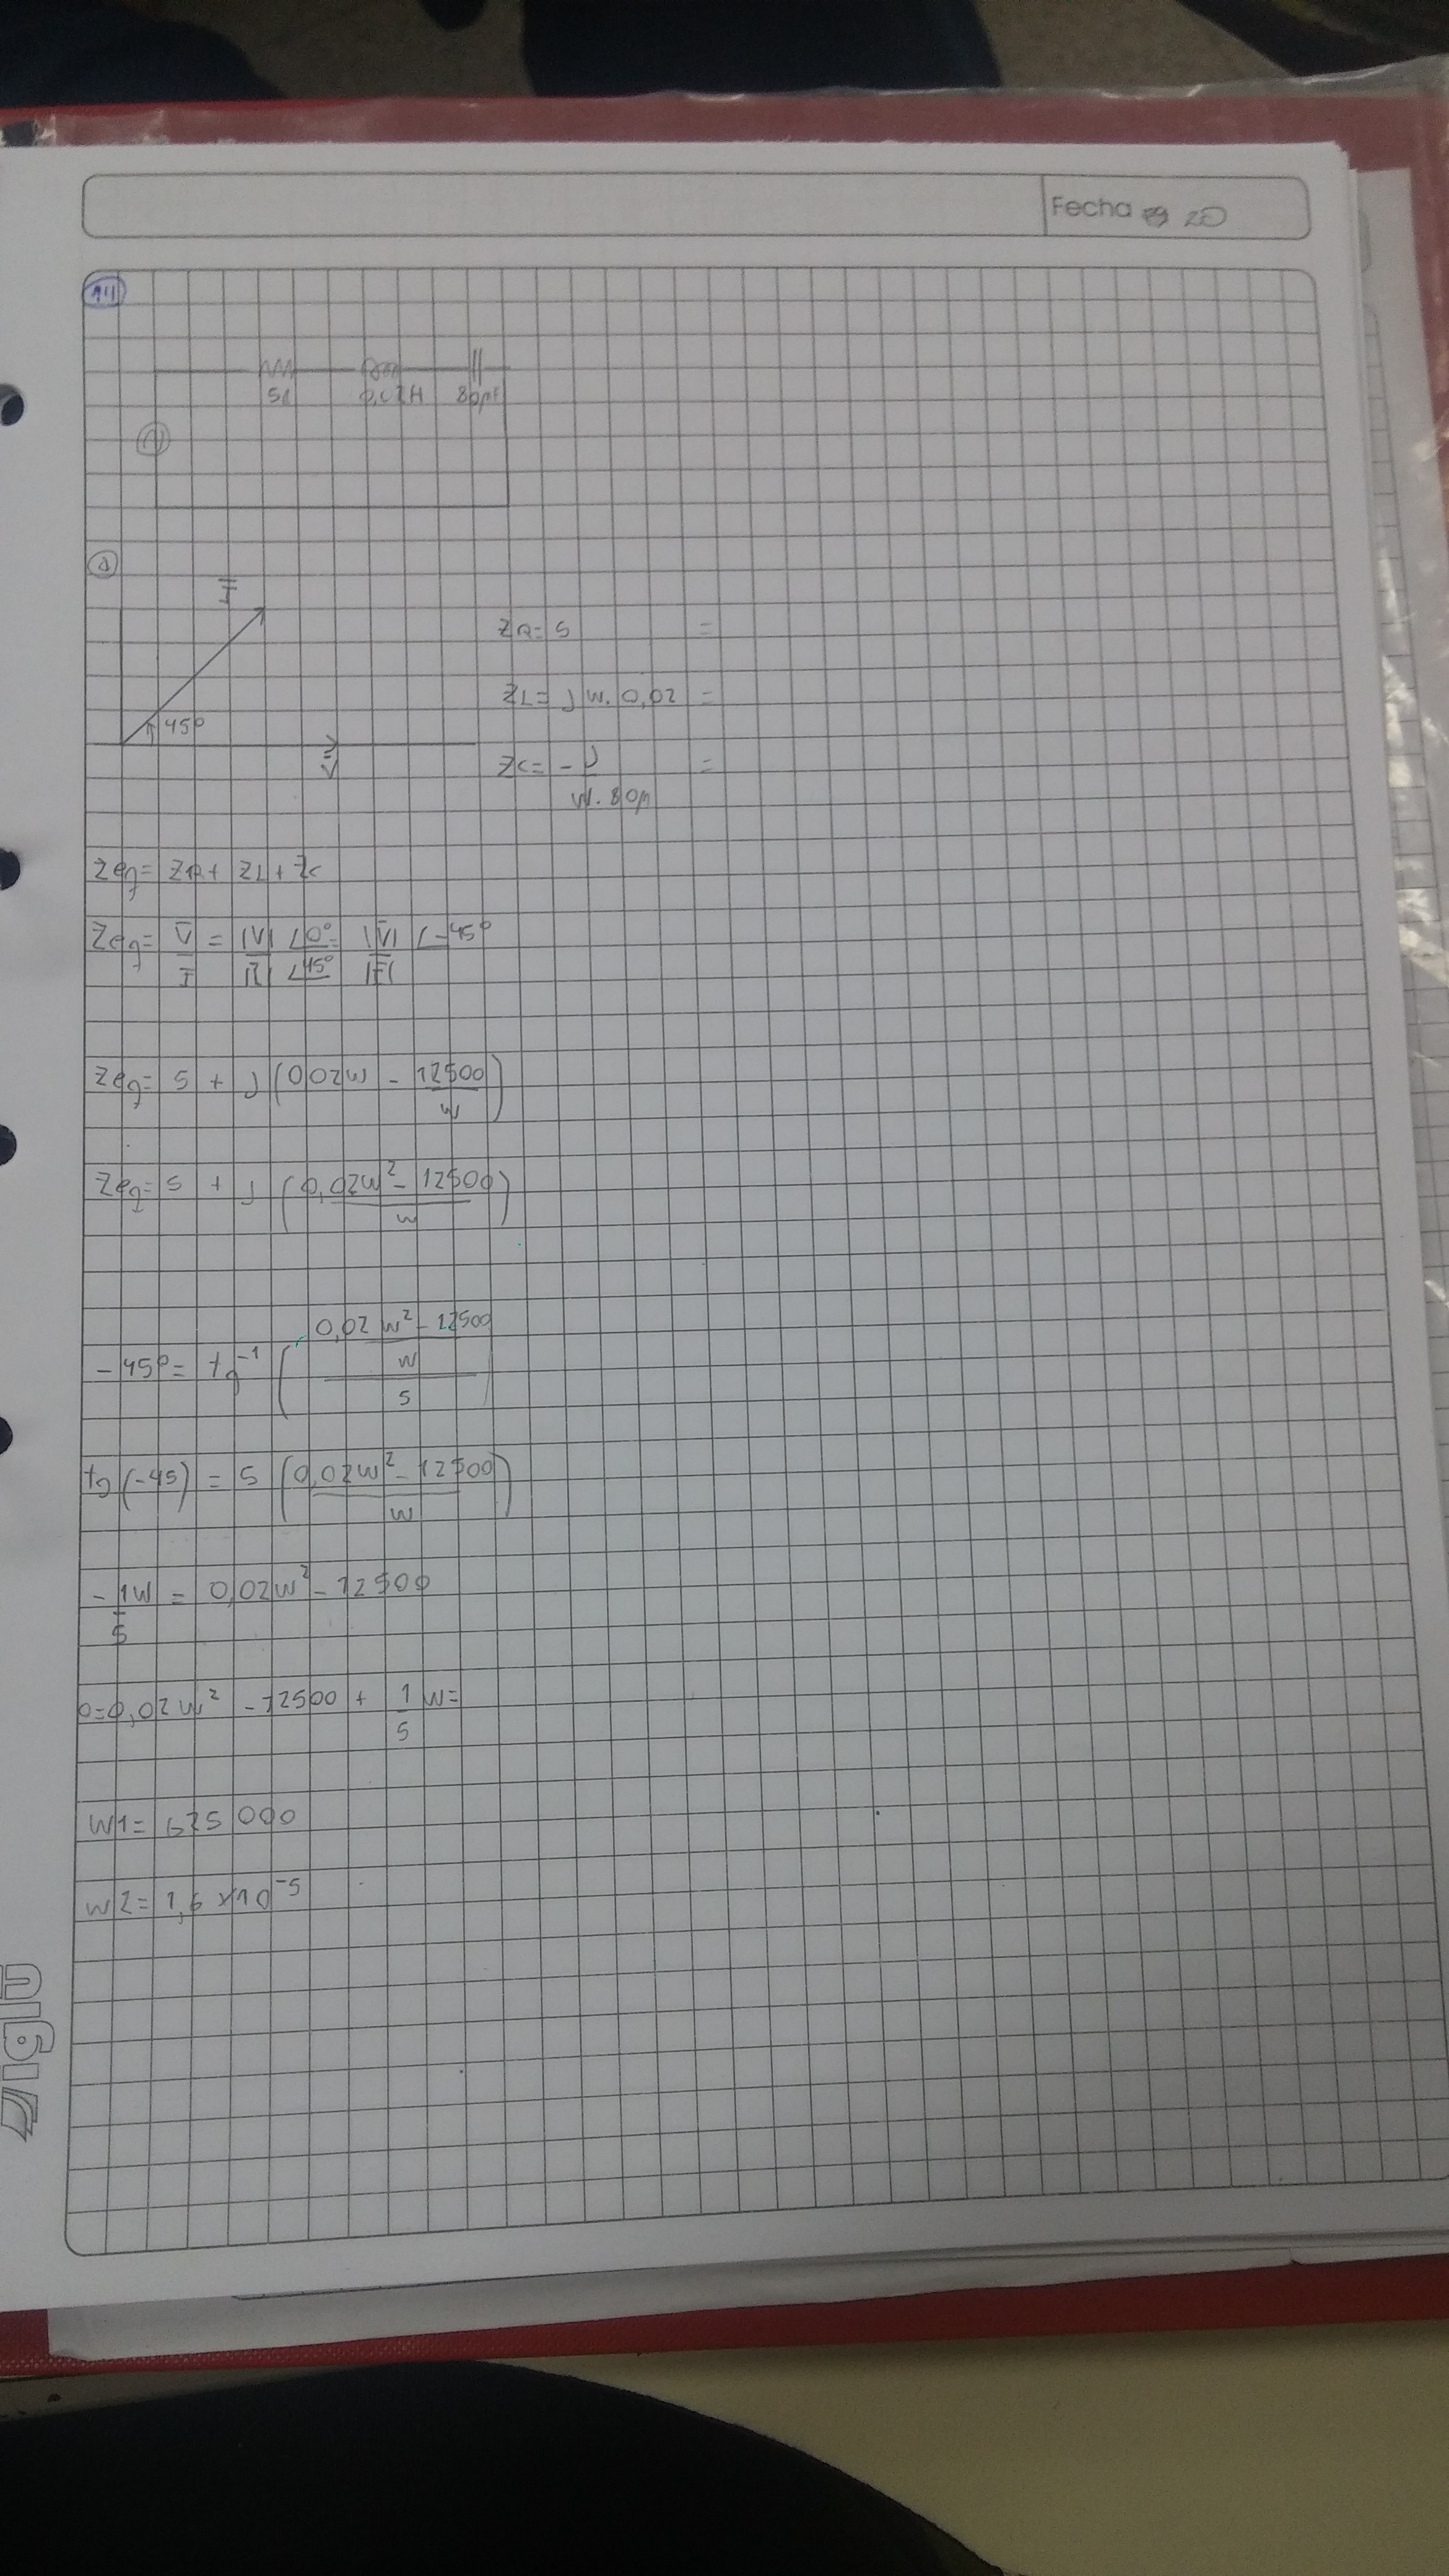 Fecha 20
14
5Ω 0,02H 80μF
a
I
45º
V
ZR= 5 =
ZL= J W. 0,02 =
ZC= -J / W. 80μ =
Zeq= ZR+ ZL + Zc
Zeq= V/I = |V| ∠0º / |I| ∠45º = |V|/|I| ∠-45º
Zeq= 5 + J (0,02W - 12500/W)
Zeq= 5 + J ((0,02W² - 12500)/W)
-45º= tg⁻¹ (((0,02 W² - 12500)/W)/5)
tg(-45) = 5 ((0,02W² - 12500)/W)
-1W/5 = 0,02W² - 12500
0=0,02W² -12500 + 1/5 W=
W1= 625000
W2= 1,6 x10⁻⁵
iglú